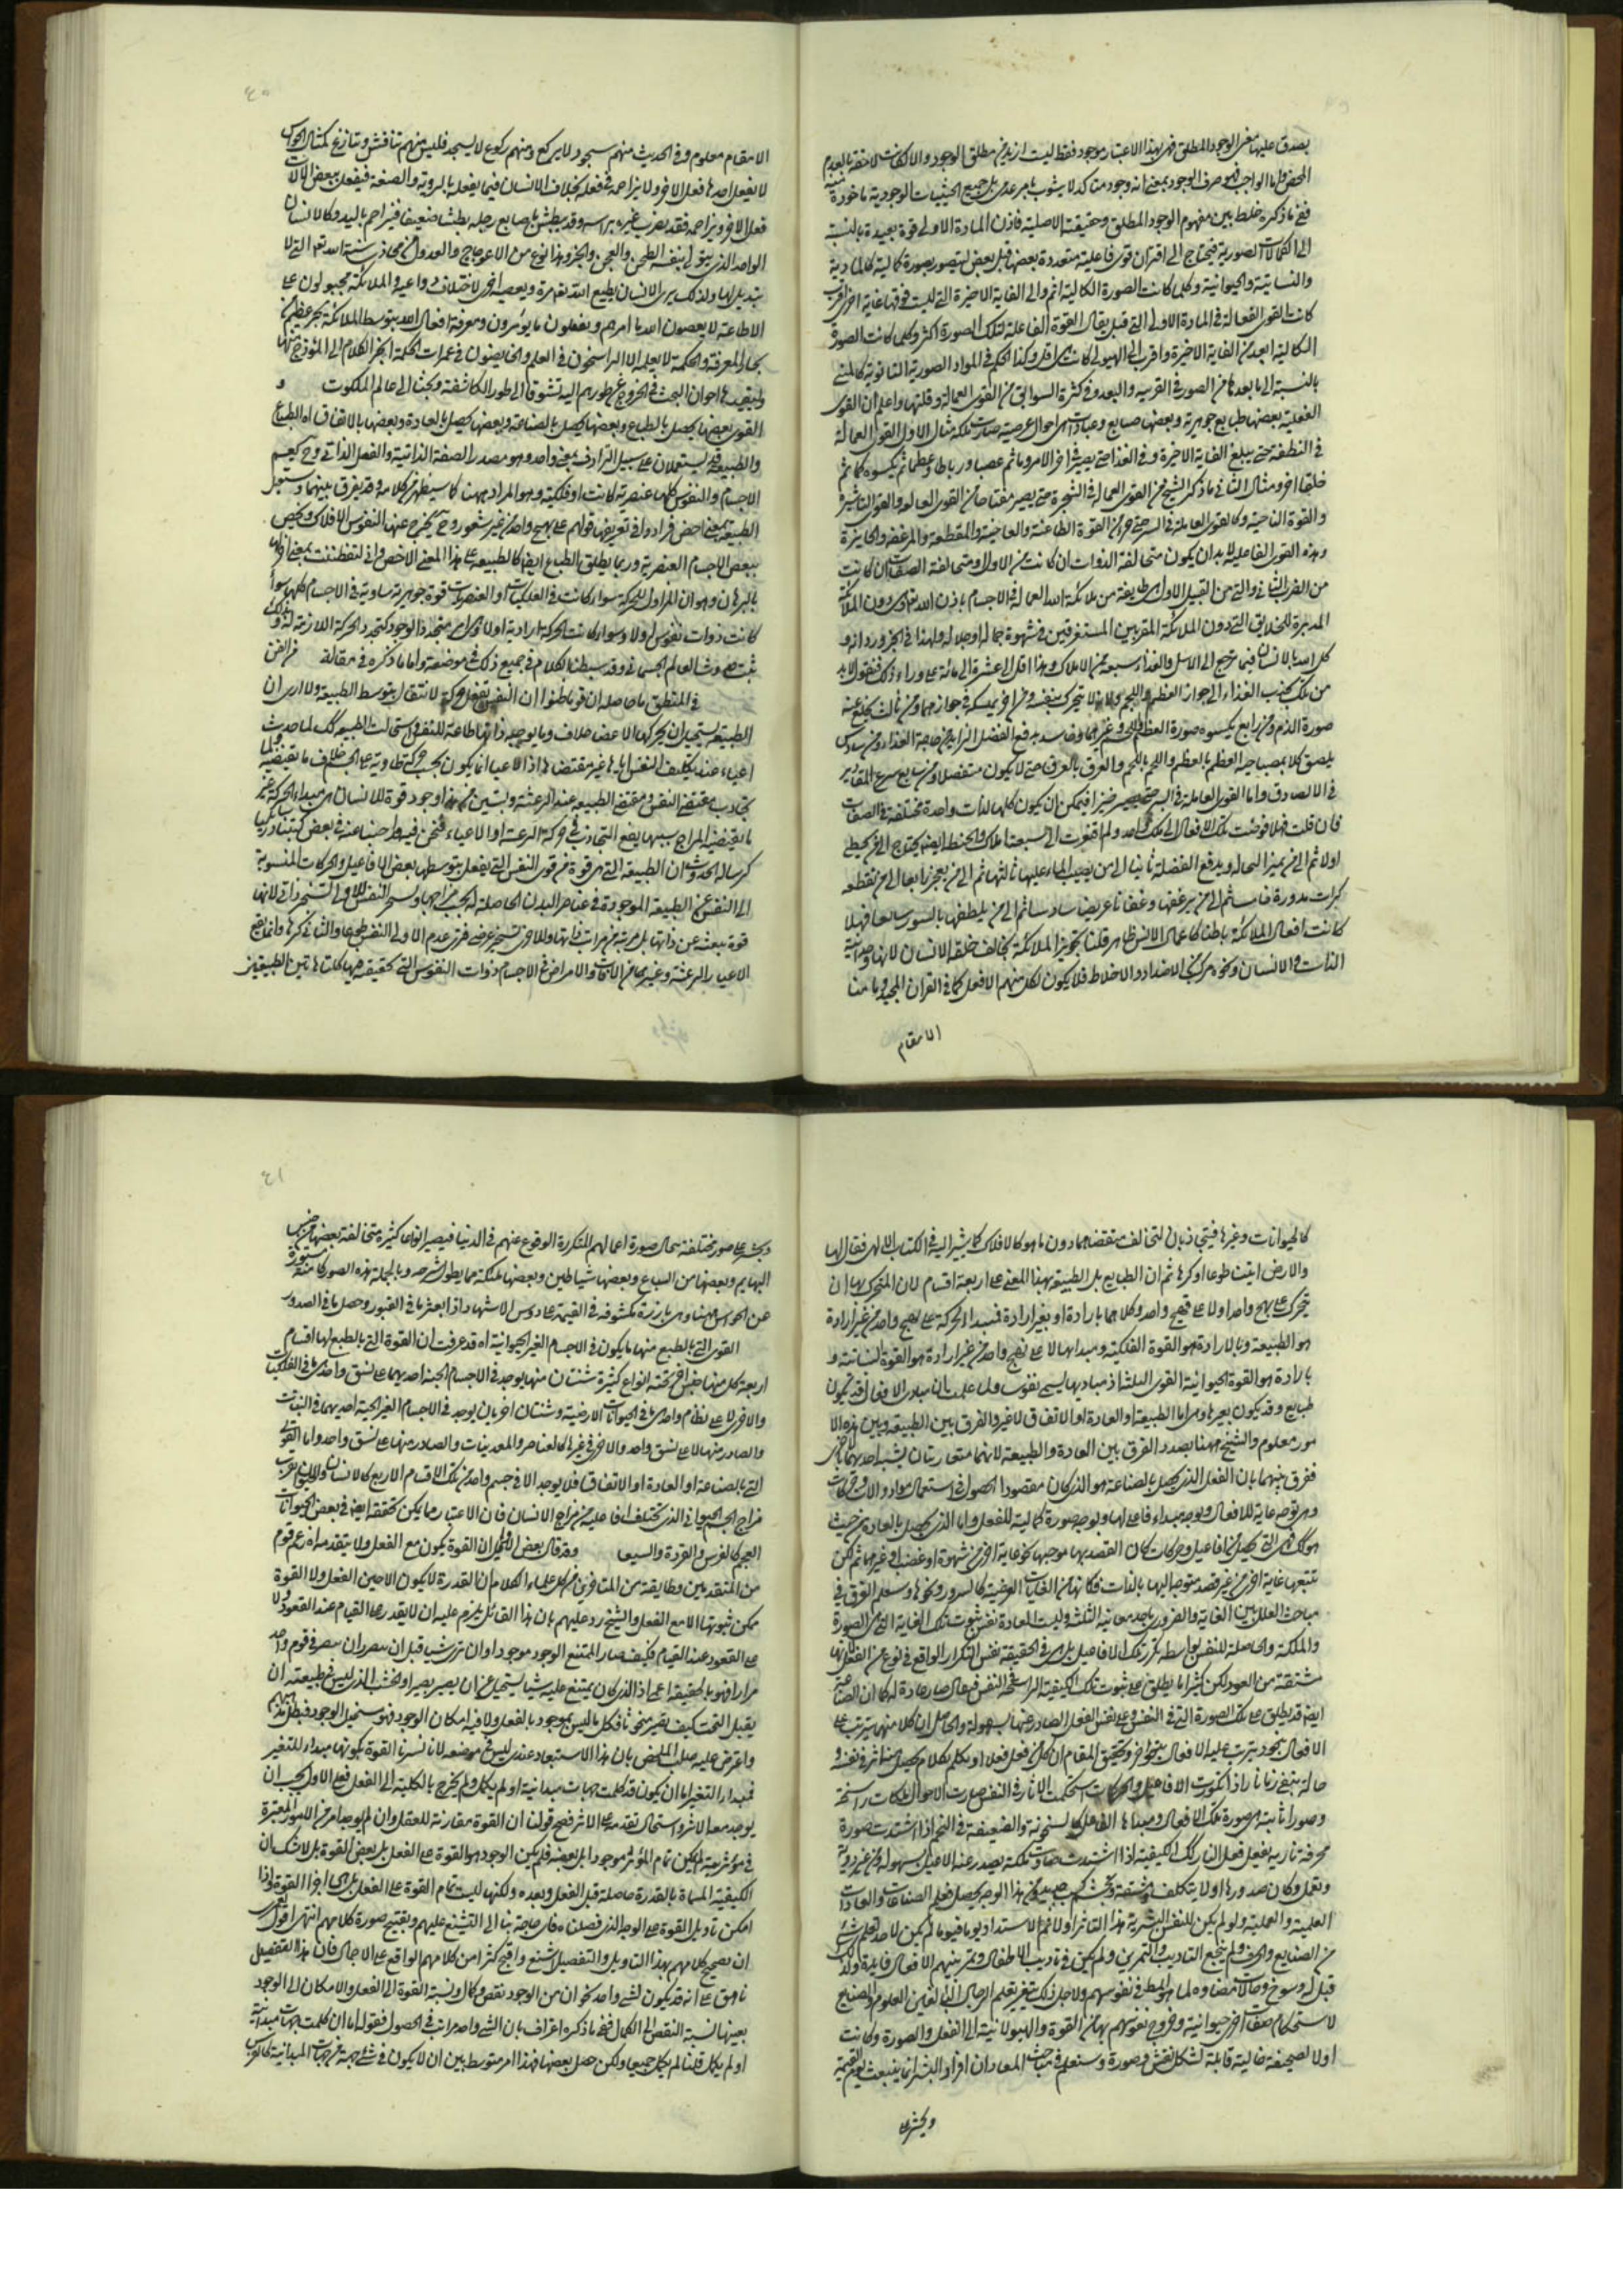 يصدق عليها معنى الوجود المطلق فهى بهذا الاعتبار موجود فقط ليست ازيد من مطلق الوجود والامكانات لاحقة بالعدم
المحض واما الواجب فهو صرف الوجود بمعنى انه وجود متاكد لا يشوب بامر عدمى بل جميع الحيثيات الوجودية ماخوذة
ففيما ذكره خلط بين مفهوم الوجود المطلق وحقيقته الاصلية فاذن المادة الاولى قوة بعيدة بالنسبة
الى الكمالات الصورية فيحتاج الى اقتران قوى فاعلية متعددة بعضها قبل بعض لتصير بصورة كمالية كالمادية
والنباتية والحيوانية وكلما كانت الصورة الكمالية اتم والى الغاية الاخيرة التى ليست فوقها غاية اخرى اقرب
كانت القوى الفعالة فى المادة الاولى التى قبل يقال القوة الفاعلة لتلك الصورة اكثر وكلما كانت الصورة
الكمالية ابعد من الغاية الاخيرة واقرب الى الهيولى كانت هى اقل وكذا الحكم فى المواد الصورية الثانوية كالمنى
بالنسبة الى ما بعدها من الصور فى القرب والبعد وفى كثرة السوابق من القوى العمالة وقلتها واعلم ان القوى
الفعلية بعضها طبايع جوهرية وبعضها صنايع وعادات اى احوال عرضية صارت ملكة مثال الاول القوى العمالة
فى النطفة حتى يبلغ الغاية الاخيرة وفى الغذاء حتى يصير فى اخر الامر وما ثم عصبا ورباطا وعظما ثم يكسوه لحما ثم
خلقا اخر ومثال الثانى ما ذكر الشيخ من القوى العمالة فى الشجرة حتى يصير مفتاحا من القوى العمالة والقوة الناشرة
والقوة الناحتة وكالقوى العاملة فى البر حتى خبز القوة الطاحنة والعاجنة والمقطعة والمرغفة والخابزة
وهذه القوى الفاعلية لا بد ان يكون متخالفة الذوات ان كانت من الاول او متخالفة الصفات ان كانت
من الضرب الثانى والتى من القبيل الاول هى طايفة من ملائكة الله العمالة فى الاجسام باذن الله تعالى دون الملائكة
المدبرة للخلايق التى دون الملائكة المقربين المستغرقين فى شهود جماله او جلاله ولهذا فى الخبر ورد انه و
كل الله بالانسان فيما يرجع الى الاكل والغذاء سبعة من الاملاك وهذا اقل الى عشرة الى مائة على وراء ذلك فنقول لا بد
من ملك يجذب الغذاء الى جوار العظم واللحم والدم لا يتحرك بنفسه ومن اخر يمسكه فى جواره ومن ثالث يخلع عنه
صورة الدم ومن رابع يكسوه صورة العظم واللحم وغيرهما وخامس يدفع الفضل الزايد من حاجة الغذاء ومن سادس
يلصق كلا بصاحبه العظم بالعظم واللحم باللحم والعرق بالعرق حتى لا يكون منفصلا ومن سابع يرعى المقادير
فى الالصاق واما القوى العاملة فى البر حتى يصير خبزا فيمكن ان يكون كلها لذات واحدة مختلفة فى الصفات
فان قلت فهلا فوضت تلك الافعال الى ملك واحد ولم افتقرت الى سبعة املاك والحنطة ايضا يحتاج الى من يحيط
اولا ثم الى من يميز النخالة ويدفع الفضلة ثانيا الى من يصب الماء عليها ثالثا ثم الى من يعجن رابعا الى من يقطعه
كرات مدورة خامسا ثم الى من يرغفها رغفانا عريضا سادسا ثم الى من يلصقها بالتنور سابعا فهلا
كانت افعال الملائكة باطنا كاعمال الانس ظاهر قلنا تجويز الملائكة يخالف خلقة الانسان لانها وحدانية
الذات والانسان ونحوه مركب من الاضداد والاخلاط فلا يكون لكل منهم الا فعل كما فى القران المجيد وما منا
الا مقام
٤٠
الا له مقام معلوم وفى الحديث منهم سجود لا يركع ومنهم ركوع لا يسجد فليس منهم تناقش وتنازع كمثال الحواس
لا يفعل احدها فعل الاخر ولا يزاحمه فى فعله بخلاف الانسان فيما يفعل بالروية والصنعة فيفعل ببعض الالات
فعل الاخر ويزاحمه فقد يضرب غيره براسه وقد يبطش باصابع رجله بطشا ضعيفا فيزاحم باليد وكالانسان
الواحد الذى يتولى بنفسه الطحن والعجن والخبز وهذا نوع من الاعوجاج والعدول عن مجاذ سنة الله تعالى التى لا
تبديل لها ولذلك يرى الانسان يطيع الله تعالى مرة ويعصيه اخرى لاختلاف دواعيه والملائكة مجبولون على
الاطاعة لا يعصون الله ما امرهم ويفعلون ما يؤمرون ومعرفة افعال الله بتوسط الملائكة بحر عظيم من
بحار المعرفة والحكمة لا يعلمه الا الراسخون فى العلم والخايضون فى غمرات الحكمة انجر الكلام الى انموذج منها
وليعتبر بها اخوان البحث فى الخروج عن طورهم اليه تشوقا الى طور المكاشفة وبحثا الى عالم الملكوت و
القوى بعضها يحصل بالطباع وبعضها يحصل بالصناعة وبعضها يحصل بالعادة وبعضها بالاتفاق اه الطباع
والطبيعة قد يستعملان على سبيل الترادف بمعنى واحد وهو مصدر الصفة الذاتية والفعل الذاتى وح يعم
الاجسام والنفوس كلها عنصرية كانت او فلكية وهو المراد ههنا كما سيظهر من كلامه وقد يفرق بينهما ويستعمل
الطبيعة بمعنى اخص فزادوا فى تعريفها قولهم على نهج واحد من غير شعور وح يخرج عنها النفوس الافلاك ويختص
ببعض الاجسام العنصرية وربما يطلق الطباع ايضا كالطبيعة على هذا المعنى الاخص وانى لتفطنت بمعنى اخر لها
بالبرهان وهو ان المزاول للحركة سواء كانت فى الفلكيات او العنصريات قوة جوهرية سارية فى الاجسام كلها سواء
كانت ذوات نفوس او لا وسواء كانت الحركة ارادية او لا وهى متجددة الوجود كتجدد الحركة اللازمة له ولذلك
ثبت حدوث العالم الجسمانى وقد بسطنا الكلام فى جميع ذلك فى موضعه واما ما ذكره فى مقالة من الفن
فى المنطق ما حاصله ان قوما ظنوا ان النفس تفعل حركة الانتقال بتوسط الطبيعة ولا ارى ان
الطبيعة يستحيل ان يحركها الاعضاء خلاف ما يوجبه ذاتها طاعة للنفس ولو استحالت الطبيعة كذلك لما حدث
اعياء عند تكليف النفس اياها غير مقتضاها اذا الاعياء انما يكون بحسب حركة طارية على الجسم خلاف ما يقتضيه ولما
تجاذب مقتضى النفس ومقتضى الطبيعة عند الرعشة وتبين من هذا وجود قوة للانسان هى مبداء الحركة غير
ما يقتضيه المزاج بسببها يقع التجاذب فى حركة الرعشة او الاعياء فنحن قد بسطنا جنبا عنه فى بعض كتبنا ورسايلنا
كرسالة الحدوث ان الطبيعة التى هى قوة من قوى النفس التى يفعل بتوسطها بعض الافاعيل والحركات المنسوبة
الى النفس غير الطبيعة الموجودة فى عناصر البدن
قوة منبعثة عن ذاتها بل مرتبة من مراتب ذاتها وللاخرى تسخير عرضى فرق عدم الاولى للنفس طوعا والثانى كرها وانما يقع
الاعياء والرعشة وغيرهما من الافات والامراض فى الاجسام ذوات النفوس التى تحققت فيها كلتا هاتين الطبيعتين
كالحيوانات وغيرها فيتجاذبان لتخالف مقتضاهما دون ما هو كالافلاك كما يشير اليه فى الكتاب الالهى فقال لها
والارض ائتيا طوعا او كرها ثم ان الطبايع بل الطبيعة بهذا المعنى على اربعة اقسام لان المتحرك بها ان
يتحرك على نهج واحد او لا على نهج واحد وكلاهما بارادة او بغير ارادة فمبدا الحركة على نهج واحد من غير ارادة
هو الطبيعة وبالارادة هو القوة الفلكية ومبداها لا على نهج واحد من غير ارادة هو القوة النباتية و
بارادة هو القوة الحيوانية القوى الثلثة اذ مباديها يسمى نفوسا ولما علمت ان مبادى الافعال قد يكون
طبايع وقد يكون بغيرها وهى اما الطبيعة او العادة او الاتفاق لا غير والفرق بين الطبيعة وبين هذه الا
مور معلوم والشيخ ههنا بصدد الفرق بين العادة والطبيعة لانهما متقاربتان يشبه احديهما بالاخرى
ففرق بينهما بان الفعل الذى يحصل بالصناعة هو الذى كان مقصودا لحصول فى استعمال مواد والات وحركات
وهى توجه غاية للافعال ويوجه مبداء فاعلى لها ويوجه صورة كمالية للفعل واما الذى يحصل بالعادة من حيث
هو كك فهو الذى يحصل من افاعيل وحركات كان القصد بها موجبها نحو غاية اخرى من شهوة او غضب او غيرهما ثم لكن
تتبعها غاية اخرى من غير قصد متوجه اليها بالذات فكانها من الغايات العرضية كالسرور ونحوها وستعلم الفرق فى
مباحث العلل بين الغاية والضرورى باحد معانيه الثلثة وليست العادة نفس ثبوت تلك الغاية التى هى الصورة
والملكة والحاصلة للنفس بواسطة تكرر تلك الافاعيل بل هى فى الحقيقة نفس التكرار الواقع فى نوع من الفعل لانها
مشتقة من العود لكن كثيرا ما يطلق على ثبوت تلك الكيفية الراسخة للنفس فيقال صار عادة له كما ان الصناعة
ايضا قد يطلق على تلك الصورة التى فى النفس وعلى نفس الفعل الصادر عنها بسهولة والحاصل ان كلا منهما يترتب على
الافعال نحو يترتب عليه الافعال بنحو اخر وتحقيق المقام ان كل من فعل فعلا او تكلم بكلام يحصل منه اثر فى نفسه و
حالة يبقى زمانا واذا تكررت الافاعيل والحركات استحكمت الاثار فى النفس صارت الاحوال ملكات راسخة
وصورا ثابتة هى صورة تلك الافعال ومبداها الفاعلى كالسخونة والضعيفة فى الفحم اذا اشتدت صورة
محرقة نارية يفعل فعل النار كك الكيفية اذا اشتدت صارت ملكة يصدر عنه الاعمال بسهولة من غير روية
وتعمل وكان صدورها اولا بتكلف ومشقة وتجشم كسب جديد ومن هذا الوجه يحصل تعلم الصناعات والعادات
العلمية والعملية ولو لم يكن للنفس البشرية هذا التاثر اولا ثم الاستداد يوما فيوما لم يكن لاحد تعلم شئ
من الصنايع والحرف ولم ينجع التاديب والتمرين ولم يكن فى تاديب الاطفال وتمرينهم الافعال فايدة وذلك
قبل رسوخ
لاستحكام صفات اخرى حيوانية وخروج نفوسهم بها من القوة والهيولانية الى الفعل والصورة وكانت
اولا لصحيفة خالية قابلة لشكل نفس وصورة وستعلم فى مباحث المعاد ان افراد البشر انما ينبعث يوم القيمة
ويحشر على
٤١
ويحشر على صور مختلفة بحسب صورة اعمالهم المتكررة الوقوع عنهم فى الدنيا فيصير انواعا كثيرة متخالفة بعضها من جنس
البهايم وبعضها من السباع وبعضها شياطين وبعضها ملئكة مما يطول شرحه وبالجملة هذه الصور كامنة مستورة
عن الحواس ههنا وهى بارزة مكشوفة فى القيمة على رؤس الاشهاد اذا بعثر ما فى القبور وحصل ما فى الصدور
القوى التى بالطبع منها ما يكون فى الاجسام الغير الحيوانية اه قد عرفت ان القوة التى بالطبع لها اقسام
اربعة كل منها جنس اخر تحته انواع كثيرة ثنتان منها يوجد فى الاجسام الحية احديهما على نسق واحد هى ما فى الفلكيات
والاخرى لا على نظام واحد هى ما فى الحيوانات الارضية وثنتان اخريان يوجد فى الاجسام الغير الحية احديهما فى النبات
والصادر منها لا على نسق واحد والاخرى فى غيرها كالعناصر والمعدنيات والصادر منها على نسق واحد واما القوى
التى بالصناعة او العادة او الاتفاق فلا يوجد الا فى جسم واحد من تلك الاقسام الاربع كالانسان
مزاج الجسم الحيوانى الذى يختلف افاعليه من مزاج الانسان فان الاعتياد مما يمكن تحققه ايضا فى بعض الحيوانات
العجم كالفرس والقردة والسيما وقد قال بعض الاوايل ان القوة يكون مع الفعل ولا يتقدمه اه زعم قوم
من المتقدمين وطايفة من المتاخرين من كل علماء الكلام ان القدرة لا يكون الا حين الفعل ولا القوة
ممكن ثبوتها الا مع الفعل والشيخ رد عليهم بان هذا القائل يلزم عليه ان لا يقدر على القيام عند القعود ولا
على القعود عند القيام فكيف صار الممتنع الوجود موجودا وان من يرى شيا قبل ان يبصر ان يبصر فى يوم واحد
مرارا فهو بالحقيقة اعمى اذ الذى كان يمتنع عليه شيا يستحيل عنه ان يصير بصيرا والخشب الذى ليس فى طبيعته ان
يقبل النحت كيف يصير منحوتا فكل ما ليس بموجود بالفعل ولا فيه امكان الوجود فهو مستحيل الوجود فبطل مذهبهم
واعترض عليه صاحب الملخص بان هذا الاستبعاد عندى ليس فى موضعه لانا نسرنا القوة بكونها مبداء للتغير
فمبداء التغير اما ان يكون قد كملت جهات مبدائية او لم يكمل ولم يخرج بالكلية الى الفعل فعلى الاول يجب ان
يوجد معه الاثر واستحال تقدمه على الاثر فصح قولنا ان القوة مقارنة للفعل وان لم يوجد امر من الامور المعتبرة
فى مؤثريته لم يكن تمام المؤثر موجودا بل بعضه فلم يكن الوجود هو القوة على الفعل بل بعض القوة بل لا شك ان
الكيفية المسماة بالقدرة حاصلة قبل الفعل وبعده ولكنها ليست تمام القوة على الفعل بل هى احد اجزا القوة واذا
امكن تاويل القوة على الوجه الذى فصلناه فاى حاجة بنا الى التشنيع عليهم وتقبيح صورة كلامهم انتهى اقول لعمرى
ان تصحيح كلامهم بهذا التاويل والتفصيل اشنع واقبح كثيرا من كلامهم الواقع على الاجمال فان هذا التفصيل
ناطق على انه قد يكون لشئ واحد نحوان من الوجود نقص وكمال ونسبة القوة الى الفعل والامكان الى الوجود
بعينها نسبة النقص الى الكمال ففيما ذكره اعتراف بان الشئ واحد مراتب فى الحصول فقوله اما ان كملت جهات مبدائية
او لم يكمل قلنا لم يكمل جميعها ولكن حصل بعضها فهذا امر متوسط بين ان لا يكون فى شئ جهة من جهات المبدائية